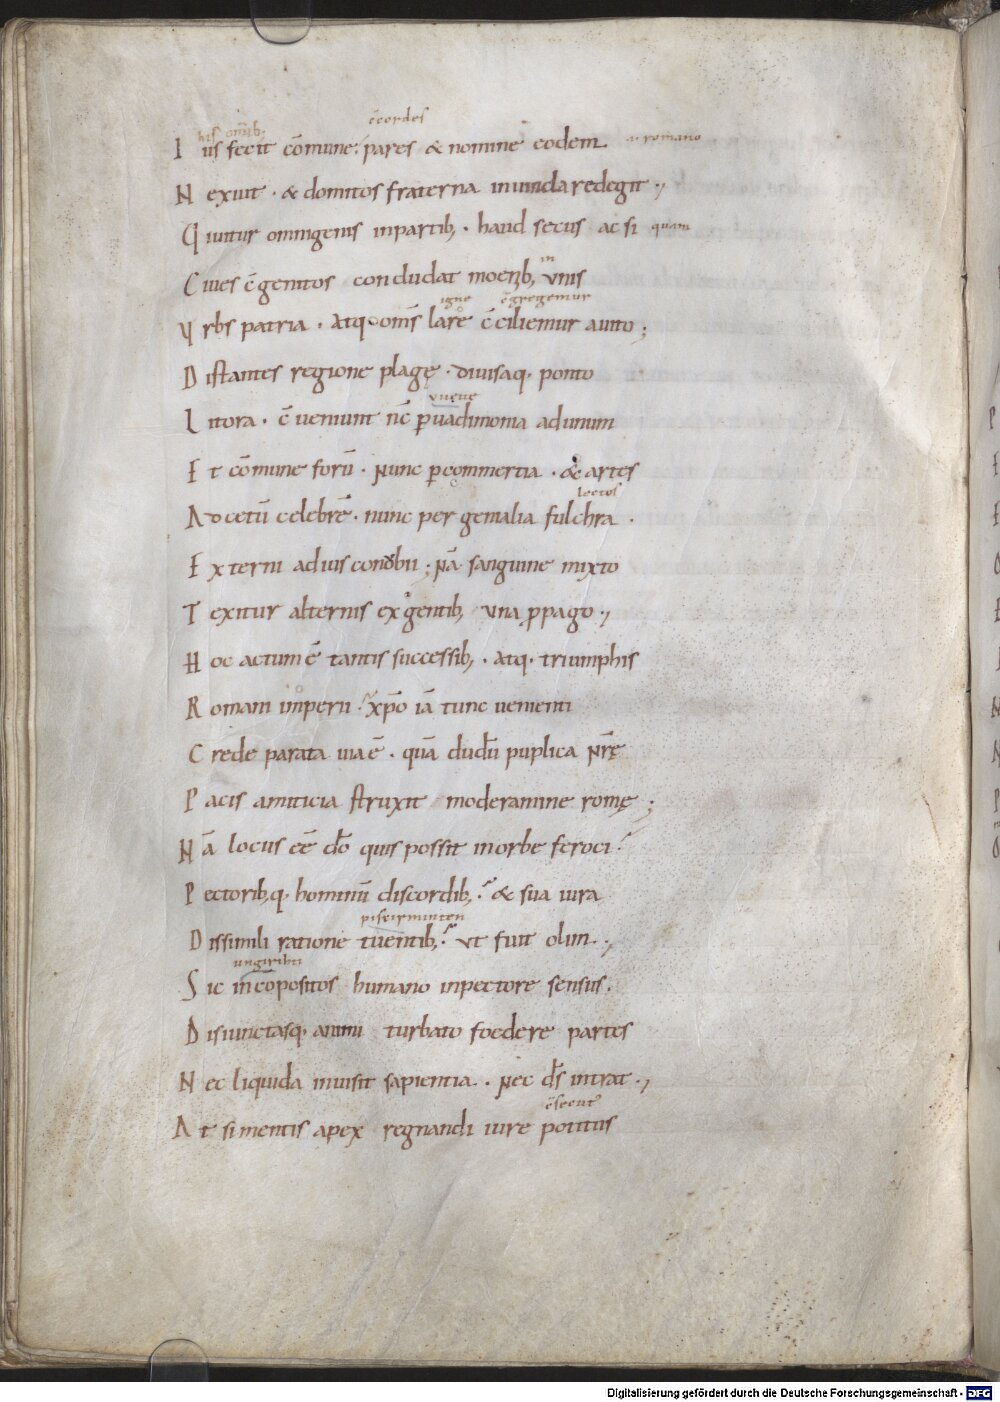 c̄cordes
his omīb;
I us fecit cōmune; pares & nomine eodem ·i· romano
N exuit · & domitos fraterna inuincla redegit ·,
Q iuitur omnigenis inpartib; · haud secus ac si quam
in
C iues c̄genitos concludat moenib; unis
igne c̄gregemur
V rbs patria · Atq; om̄s lare c̄ciliemur auito ;
D istantes regione plagę · diuisaq; ponto
L itora · c̄ueniunt nc̄ ꝑuadimonia adunum
E t cōmune forū · Nunc ꝑcommertia · & artes
lectos
A d cetū celebrē · nunc per genialia fulchra ·
E xterni adius conubii ; Nā sanguine mixto
T exitur alternis ex gentib; una ꝓpago ·,
H oc actum ē tantis successib; · atq; triumphis
R omani imperii · xp̄o iā tunc uenienti
C rede parata uia ē · quā dudū puplica nr̄ę
P acis amiticia struxit moderamine romę ;
N ā locus eē dō quis possit inorbe feroci ·
P ectorib;q; hominū discordib; · & sua iura
piscirminten
D issimili ratione tuentib; · ut fuit olim ·,
ungiribti
S ic incōpositos humano inpectore sensus ·
D isiunctasq; animi turbato foedere partes
N ec liquida inuisit sapientia · Nec ds̄ intrat ·,
A t si mentis apex regnandi iure potitus
Digitalisierung gefördert durch die Deutsche Forschungsgemeinschaft - DFG